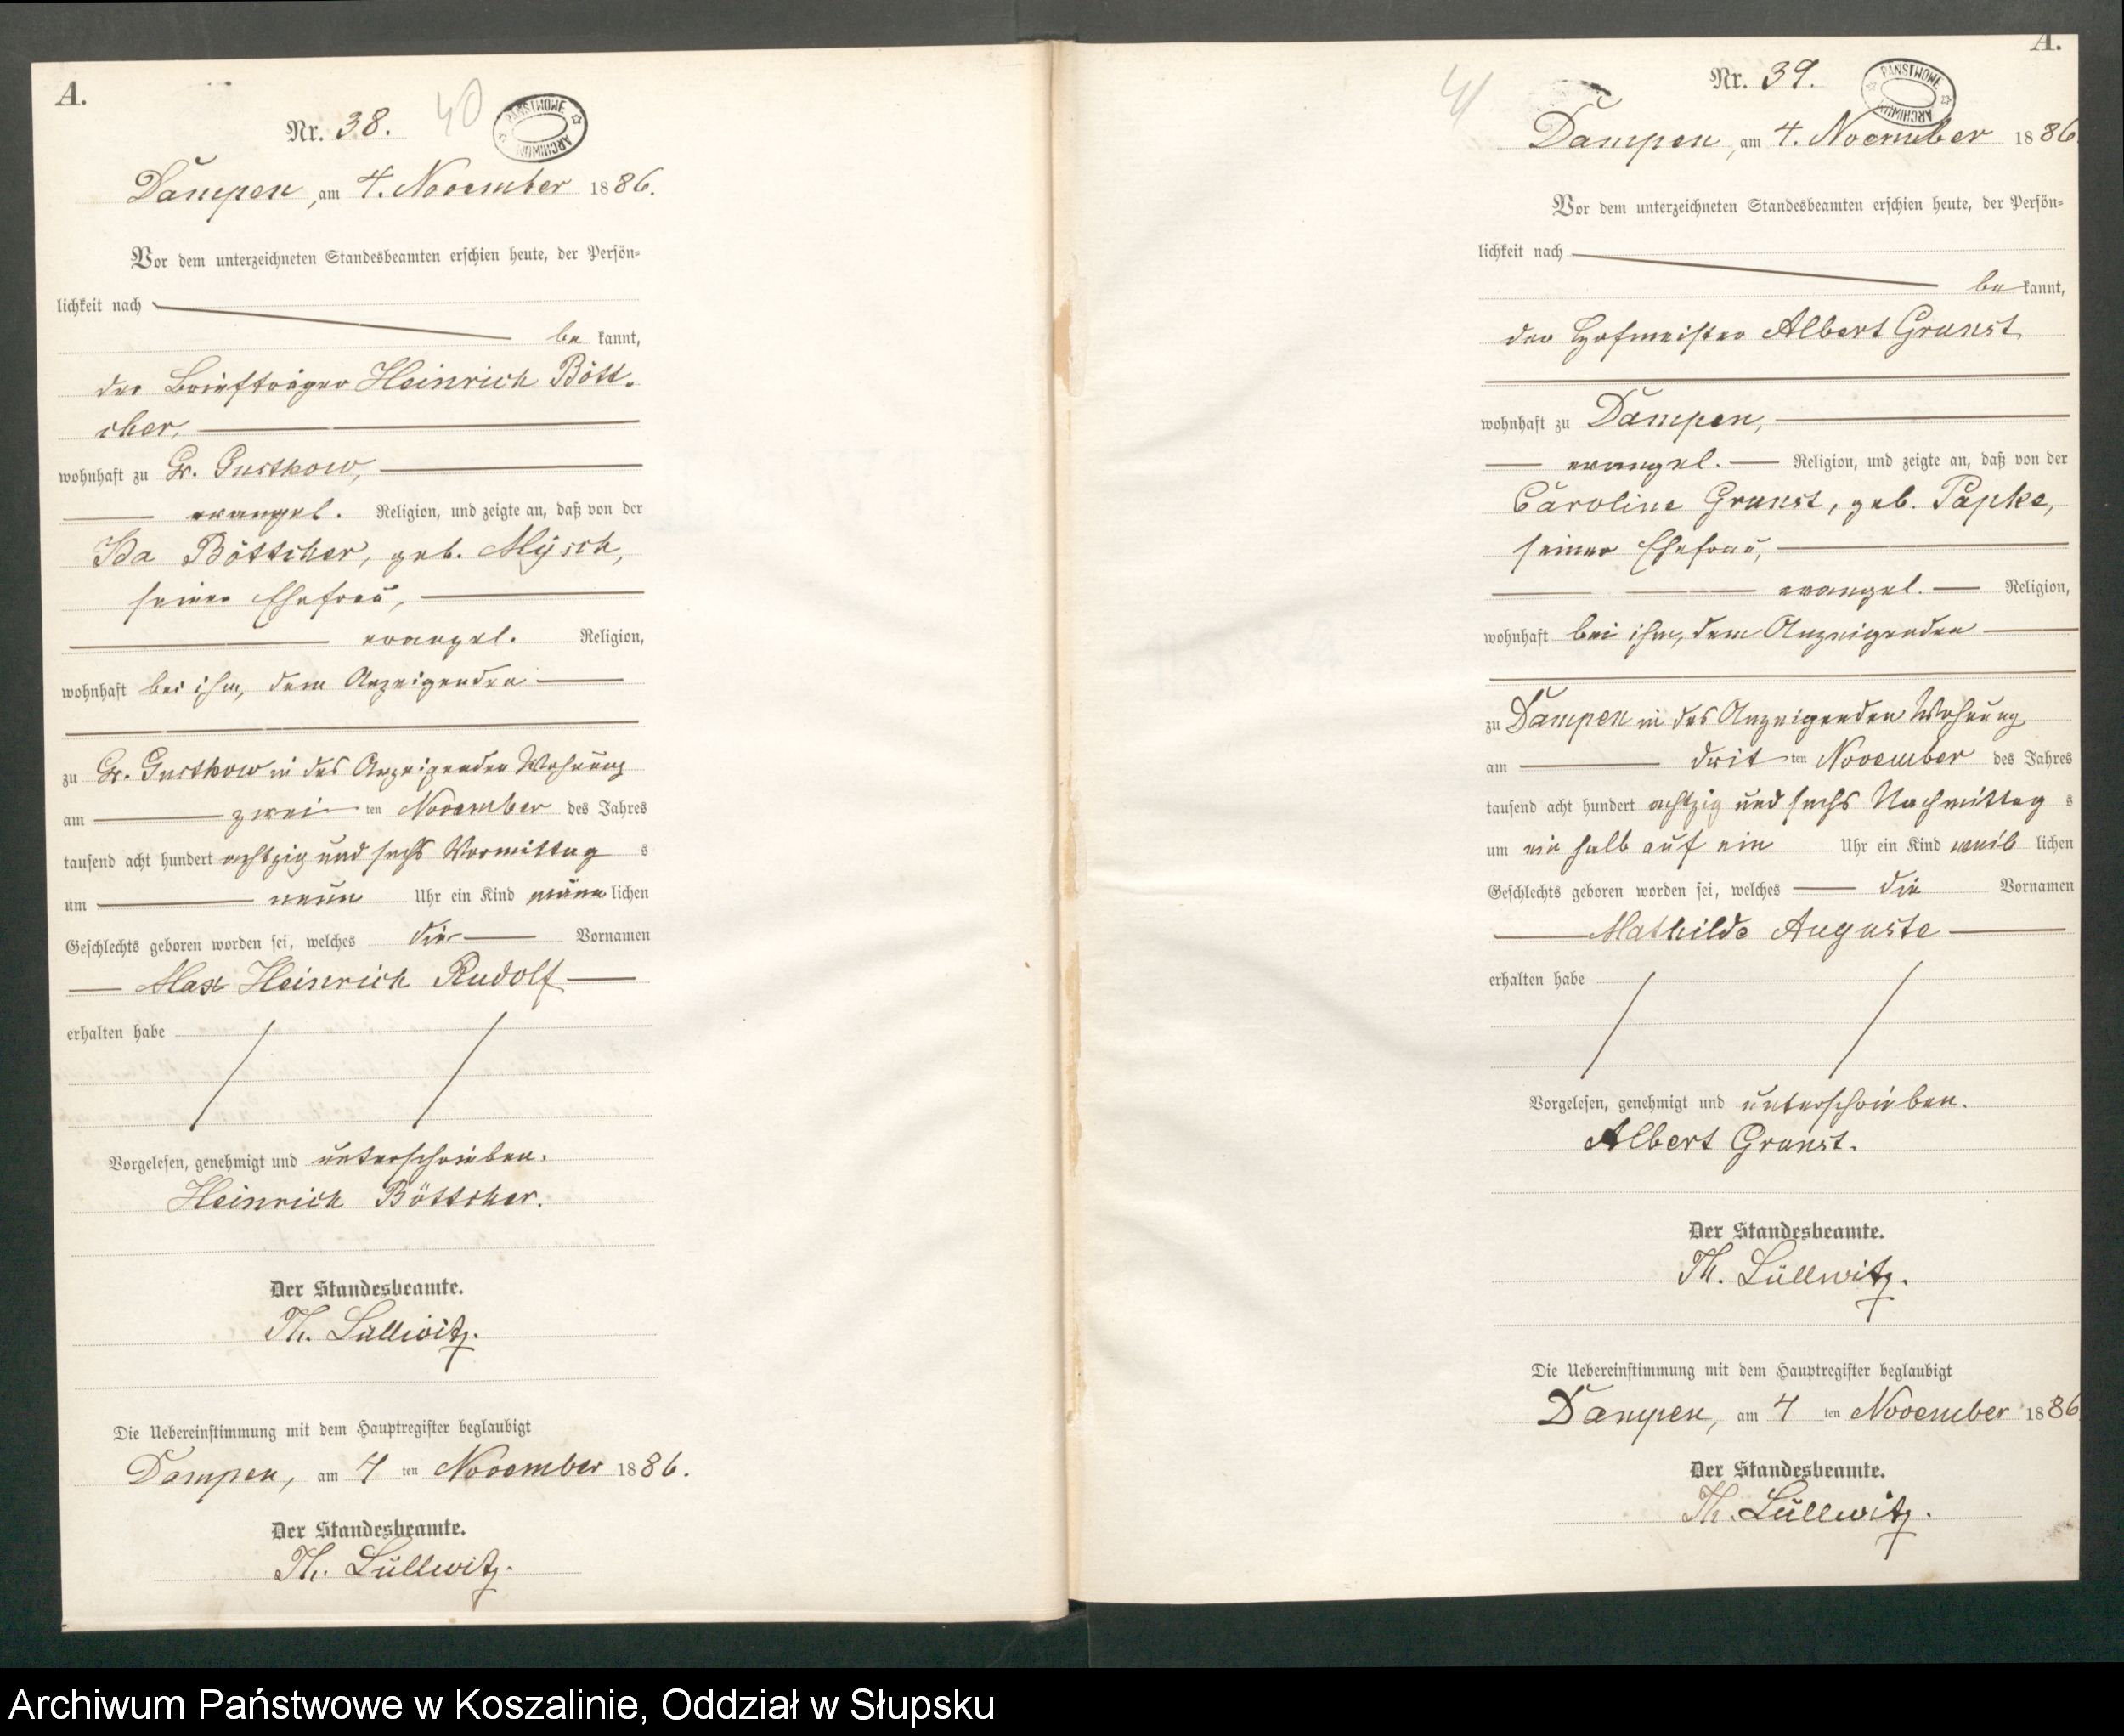 A.
Nr. 38.
40
PAŃSTWOWE
ARCHIWUM
Dampen, am 4. November 1886.
Vor dem unterzeichneten Standesbeamten erschien heute, der Persön=
lichkeit nach
be kannt,
der Briefträger Heinrich Bött-
cher,
wohnhaft zu Gr. Gustkow,
evangel. Religion, und zeigte an, daß von der
Ida Böttcher, geb. Mysch,
seiner Ehefrau,
evangel. Religion,
wohnhaft bei ihm, dem Anzeigenden
zu Gr. Gustkow in des Anzeigenden Wohnung
am zwei ten November des Jahres
tausend acht hundert achtzig und sechs Vormittag s
um neun Uhr ein Kind männ lichen
Geschlechts geboren worden sei, welches die Vornamen
Max Heinrich Rudolf
erhalten habe
Vorgelesen, genehmigt und unterschrieben.
Heinrich Böttcher.
Der Standesbeamte.
Th. Lüllwitz.
Die Uebereinstimmung mit dem Hauptregister beglaubigt
Dampen, am 4 ten November 1886.
Der Standesbeamte.
Th. Lüllwitz.
A.
41
Nr. 39.
PAŃSTWOWE
ARCHIWUM
Dampen, am 4. November 1886
Vor dem unterzeichneten Standesbeamten erschien heute, der Persön=
lichkeit nach
be kannt,
der Hofmeister Albert Granst
wohnhaft zu Dampen,
evangel. Religion, und zeigte an, daß von der
Caroline Granst, geb. Papke,
seiner Ehefrau,
evangel. Religion,
wohnhaft bei ihm, dem Anzeigenden
zu Dampen in des Anzeigenden Wohnung
am drit ten November des Jahres
tausend acht hundert achtzig und sechs Nachmittag s
um ein halb auf ein Uhr ein Kind weib lichen
Geschlechts geboren worden sei, welches die Vornamen
Mathilde Auguste
erhalten habe
Vorgelesen, genehmigt und unterschrieben.
Albert Granst.
Der Standesbeamte.
Th. Lüllwitz.
Die Uebereinstimmung mit dem Hauptregister beglaubigt
Dampen, am 4 ten November 1886
Der Standesbeamte.
Th. Lüllwitz.
Archiwum Państwowe w Koszalinie, Oddział w Słupsku